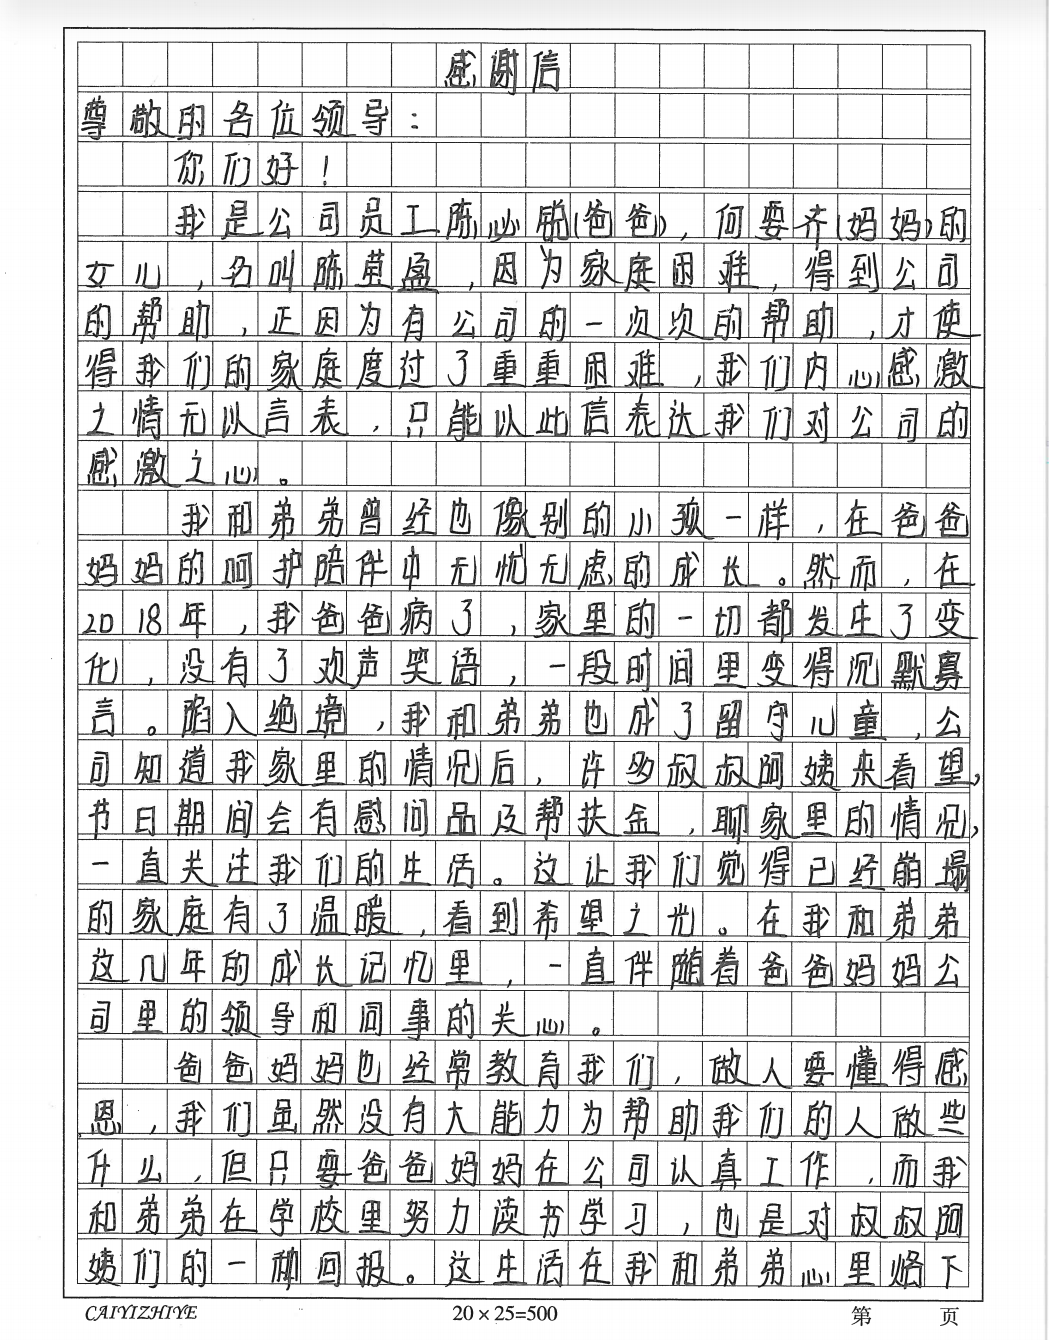 感谢信
尊敬的各位领导：
你们好！
我是公司员工陈必锐(爸爸)，何要齐(妈妈)的
女儿，名叫陈萱盈，因为家庭困难，得到公司
的帮助，正因为有公司的一次次的帮助，才使
得我们的家庭度过了重重困难，我们内心感激
之情无以言表，只能以此信表达我们对公司的
感激之心。
我和弟弟曾经也像别的小孩一样，在爸爸
妈妈的呵护陪伴中无忧无虑的成长。然而，在
2018年，我爸爸病了，家里的一切都发生了变
化，没有了欢声笑语，一段时间里变得沉默寡
言。陷入绝境，我和弟弟也成了留守儿童，公
司知道我家里的情况后，许多叔叔阿姨来看望，
节日期间会有慰问品及帮扶金，聊家里的情况，
一直关注我们的生活。这让我们觉得已经崩塌
的家庭有了温暖，看到希望之光。在我和弟弟
这几年的成长记忆里，一直伴随着爸爸妈妈公
司里的领导和同事的关心。
爸爸妈妈也经常教育我们，做人要懂得感
恩，我们虽然没有大能力为帮助我们的人做些
什么，但只要爸爸妈妈在公司认真工作，而我
和弟弟在学校里努力读书学习，也是对叔叔阿
姨们的一种回报。这生活在我和弟弟心里烙下
CAIYIZHIYE 20×25=500 第 页